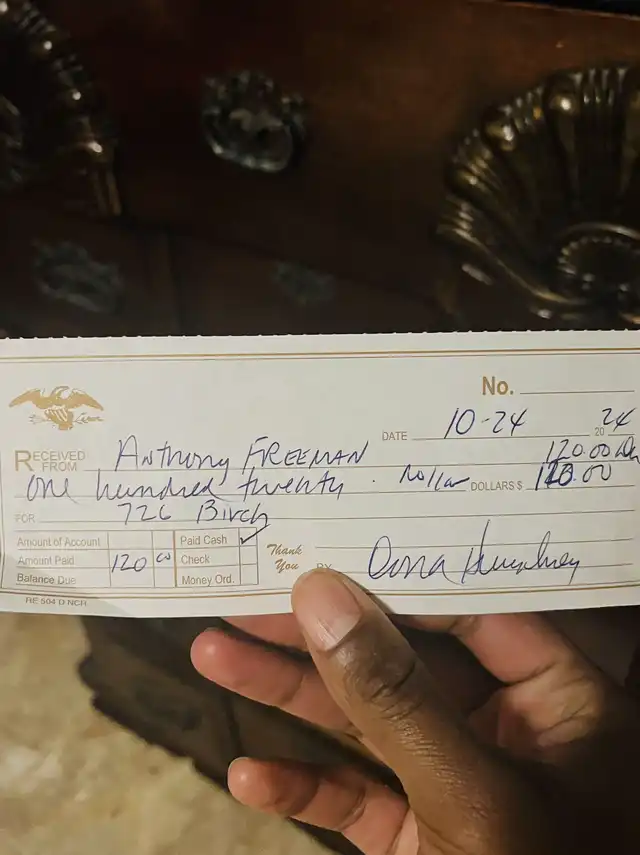 No.
DATE 10-24 20 24
RECEIVED FROM Anthony FREEMAN 120.00
one hundred twenty. Dollar DOLLARS $ 120.00
FOR 726 Birch
Amount of Account
Amount Paid 120 00
Balance Due
Paid Cash ✓
Check
Money Ord.
Thank You
BY Humphrey
RE 504 D NCR